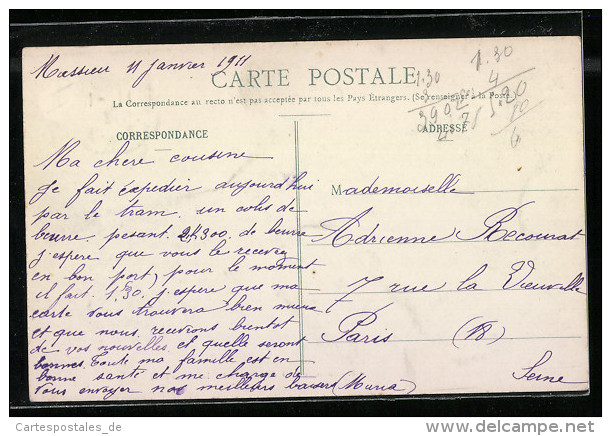 Moessieu 11 Janvier 1911
CARTE POSTALE
La Correspondance au recto n'est pas acceptée par tous les Pays Étrangers. (Se renseigner à la Poste.)
1.30
4
1.30
5.20
10
CORRESPONDANCE
ADRESSE
Ma chere cousine
Je fait éxpedier aujourd'hui
par le tram, un colis de
beurre, pesant, 24,300, de beurre
j'espere que vous le recevez
en bon port, pour le moment
il fait 1,30, j'espere que ma
carte vous trouvera bien mieux
et que nous recevrons bientot
de vos nouvelles, et quelle seront
bonnes. Toute ma famille est en
bonne santé et me charge de
vous envoyer nos meilleurs baisers (Maria)
Mademoiselle
Adrienne Recourat
7 rue la Vieuville
Paris (18)
Seine
Cartespostales_de
www.delcampe.net